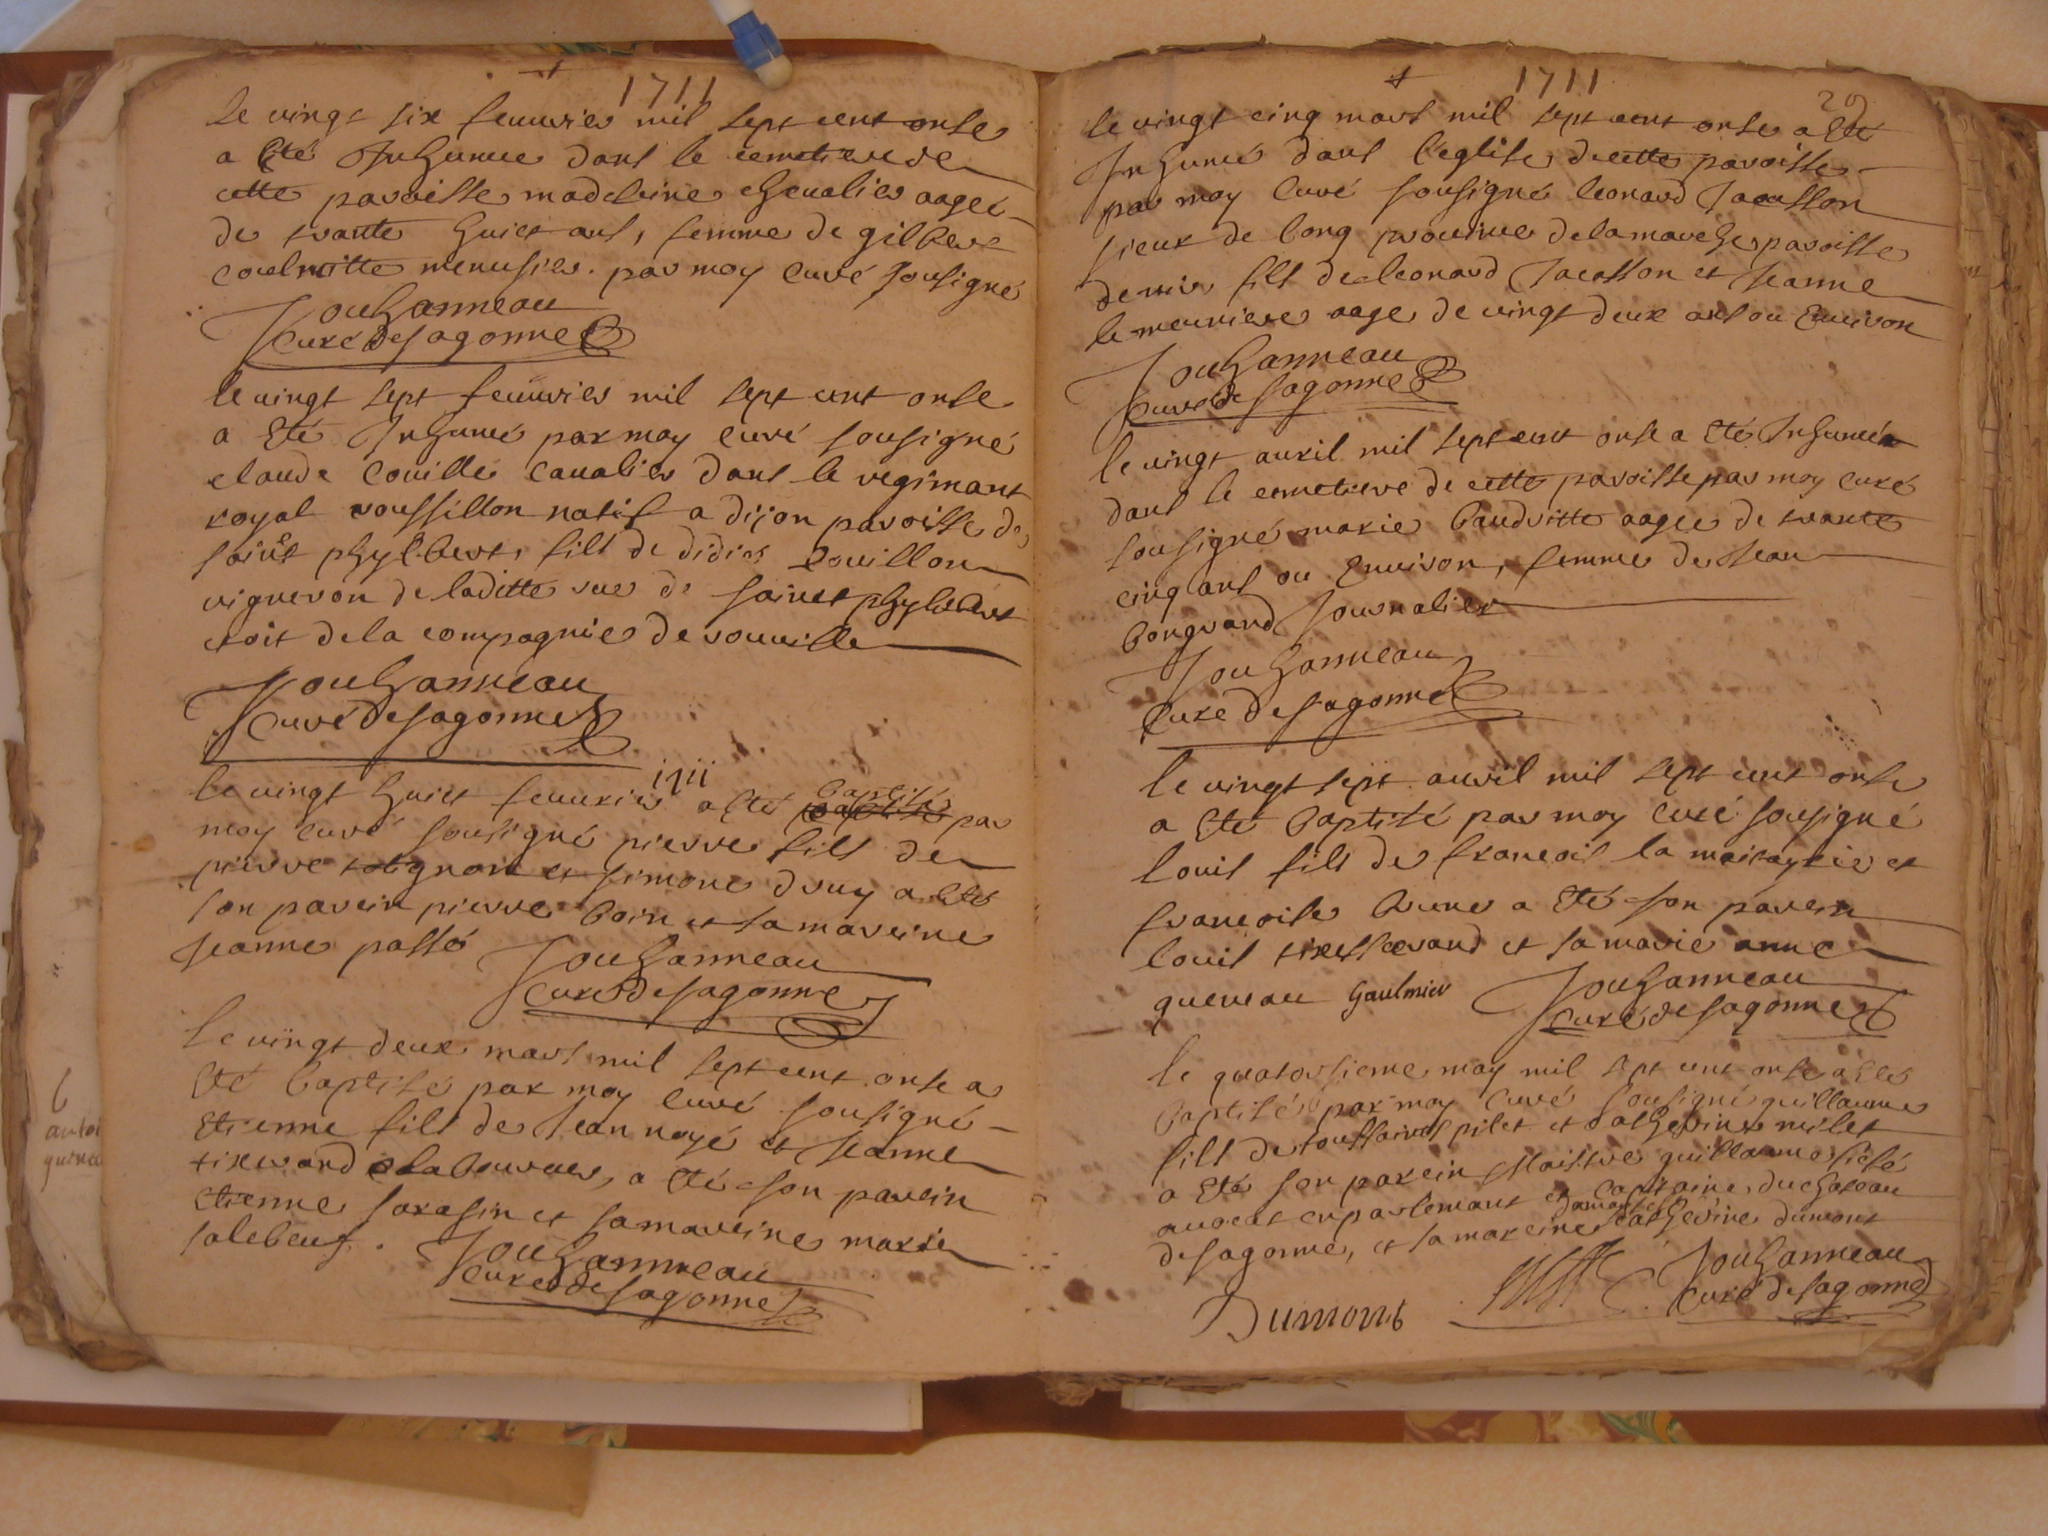 1711
le vingt six feuurier mil sept cent onse
a Eté Inhumee dans le cemetiere de
cette paroisse madeleine chevalier aagee
de trante huict ans, femme de gilbert
menusier. par moy curé sousigné
Jouhanneau
curé de sagonne
le vingt sept feuurier mil sept cent onse
a Eté Inhumé par moy curé sousigné
claude couillé caualier dans le regimant
royal roussillon natif a dijon paroisse de
saint phylbert, fils de didier couillon
vigneron de laditte rue de sainct phylbert
etoit de la compagnie de rouuille
Jouhanneau
curé de sagonne
1711
le vingt huict feuurier a Eté baptisé par
moy curé sousigné pierre fils de
pierre et simone druy a Eté
son parein pierre boin et sa mareine
Jeanne passé
Jouhanneau
curé de sagonne
le vingt deux mars mil sept cent onse a
Eté baptisé par moy curé sousigné
Etienne fils de Jean noyé et Jeanne
tixerand laboureur, a Eté son parein
Etienne sarasin et sa mareine marie
salebeuf.
Jouhanneau
curé de sagonne
6
autoi
1711
29
le vingt cinq mars mil sept cent onse a Eté
Inhumé dans l'eglise de cette paroisse
par moy curé sousigné leonard Jacasson
sieur de long prouince de la marche paroisse
de fils de leonard Jacasson et Jeanne
la meuniere aage de vingt deux ans ou Enuiron
Jouhanneau
curé de sagonne
le vingt auril mil sept cent onse a Eté Inhumée
dans le cemetiere de cette paroisse par moy curé
sousigné marie baudritte aagee de trante
cinq ans ou Enuiron, femme de Jean
bongrand Journalier
Jouhanneau
curé de sagonne
le vingt sept auril mil sept cent onse
a Eté baptisé par moy curé sousigné
louis fils de francois la et
francoise brune a Eté son parein
louis tixerand et sa marie anne
queneau Gaulmier
Jouhanneau
curé de sagonne
le quatorsieme may mil sept cent onse a Eté
baptisé par moy curé sousigné guillaume
fils de toussainct pilet et catherine milet
a Eté son parein Maistre guillaume
auocat en parlemant et capitaine du chateau
de sagonne, et sa mareine damoiselle catherine dumont
Jouhanneau
curé de sagonne
Dumont